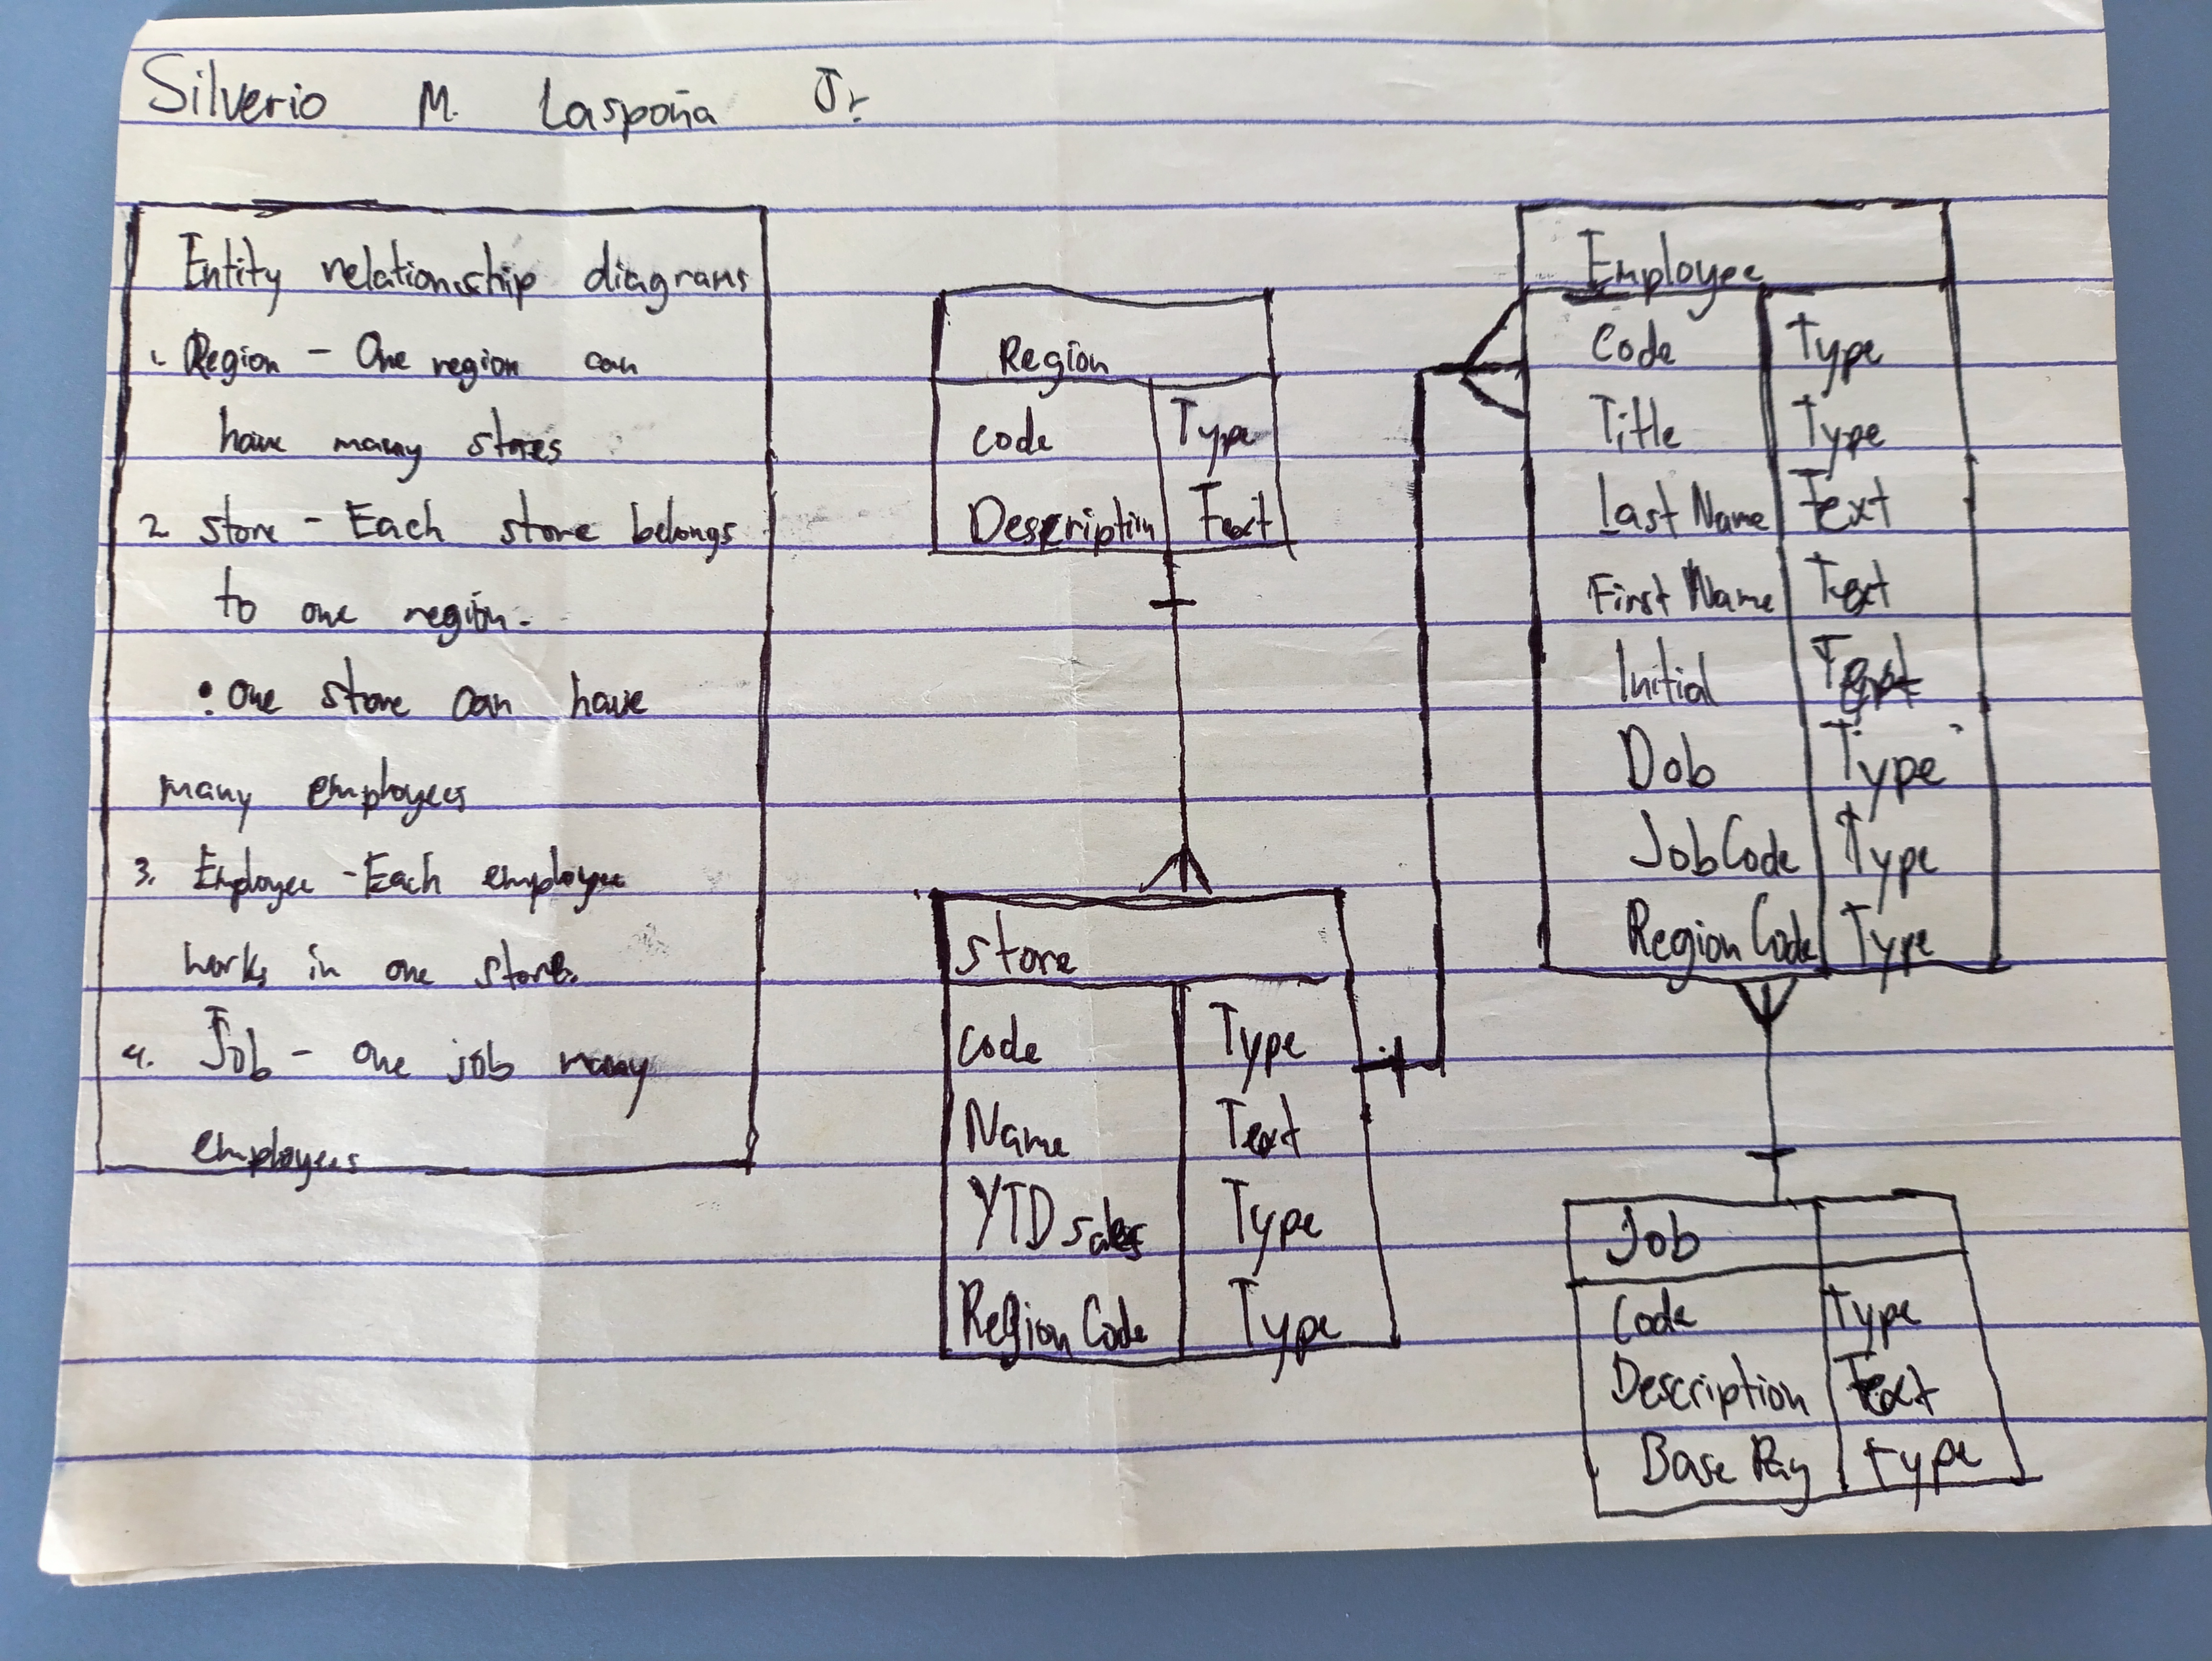 Silverio M. Laspoña Jr.
Entity relationship diagrams
1. Region - One region can
have many stores
2. Store - Each store belongs
to one region.
• one store can have
many employees
3. Employee - Each employee
works in one store.
4. Job - one job many
employees
Region
Code Type
Description Text
Store
Code Type
Name Text
YTD sales Type
Region Code Type
Employee
Code Type
Title Type
Last Name Text
First Name Text
Initial Text
Dob Type
Job Code Type
Region Code Type
Job
Code Type
Description Text
Base Pay type